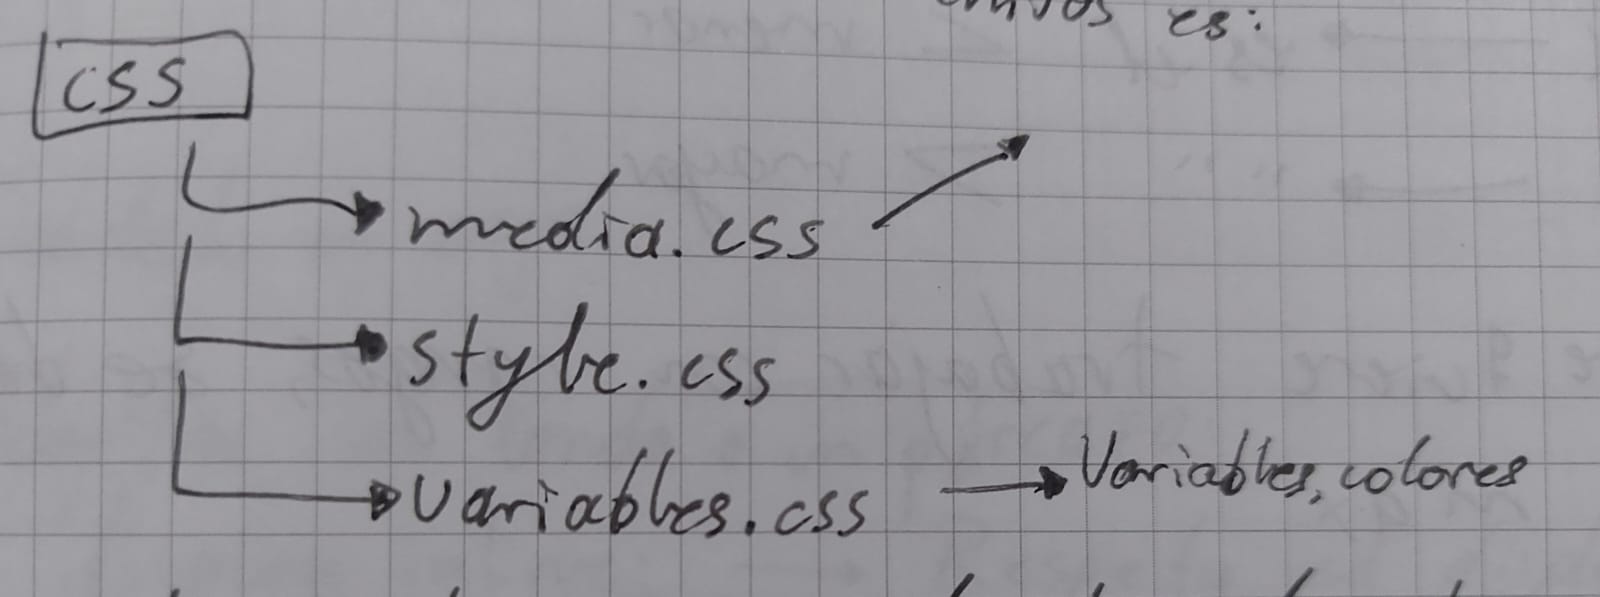 es:
CSS
media.css
style.css
variables.css
Variables, colores